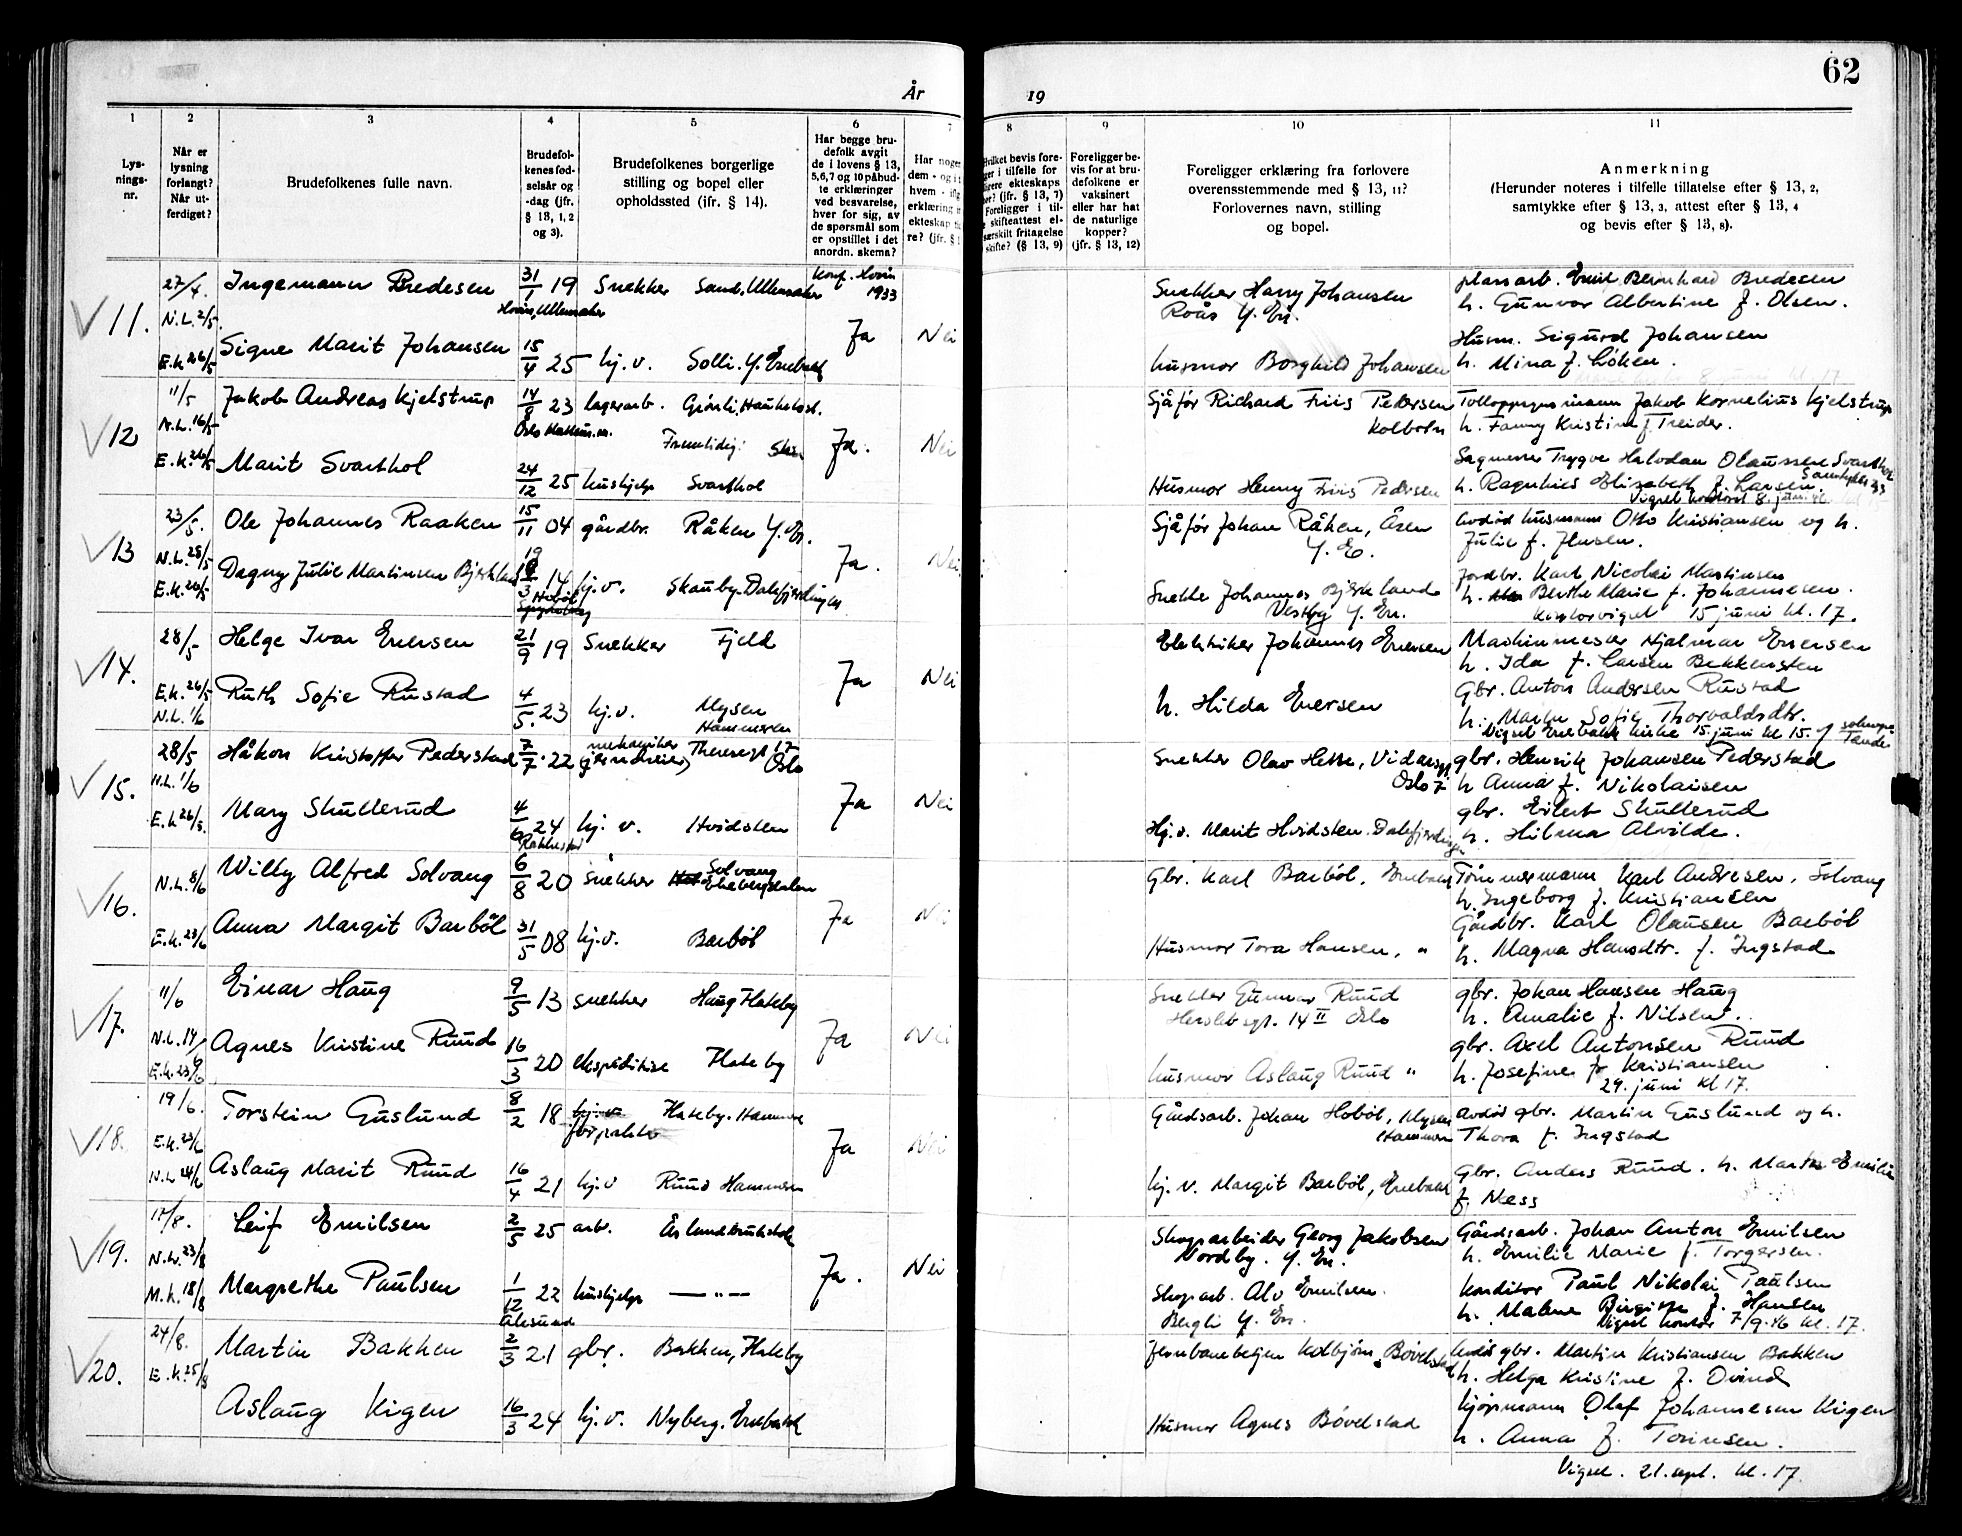 År
19
62
1
2
3
4
5
6
7
8
9
10
11
Lys-
nings-
nr.
Når er
lysning
forlangt?
Når ut-
ferdiget?
Brudefolkenes fulle navn.
Brudefol-
kenes fød-
selsår og
-dag (jfr.
§ 13, 1, 2
og 3).
Brudefolkenes borgerlige
stilling og bopel eller
opholdssted (ifr. § 14).
Har begge bru-
defolk avgit
de i lovens § 13,
5,6,7 og 10 påbud-
te erklæringer
ved besvarelse,
hver for sig, av
de spørsmål som
er opstillet i det
anordn. skema?
Har noge
dem - og i t
hvem - ift
erklæring
ekteskap
re? (jfr. §
Hvilket bevis fore-
ger i tilfelle for
ligere ekteskaps
hør? (jfr. § 13, 7)
Foreligger i til-
skifteattest el-
særskilt fritagelse
skifte? (§ 13, 9)
Foreligger be-
vis for at bru-
defolkene er
vaksinert
eller har hat
de naturlige
kopper?
(jfr. § 13, 12)
Foreligger erklæring fra forlovere
overensstemmende med § 13, 11?
Forlovernes navn, stilling
og bopel.
Anmerkning
(Herunder noteres i tilfelle tillatelse efter § 13, 2,
samtykke efter § 13, 3, attest efter § 13, 4
og bevis efter § 13, 8).
11.
27/4.
N.L. 2/5.
E.k. 26/5
Ingemann Bredesen 31/1 19 Snekker Sand, Ullensaker
Hovin, Ullensaker
Konf. Hovin
1933
Signe Marit Johansen 15/4 25 hj.v. Solli. Y. Enebakk
Ja Nei
Snekker Harry Johansen
Roås Y. En.
husmor Borghild Johansen
Emil Bernhard Bredesen
h. Gunvor Albertine f. Olsen.
Husm. Sigurd Johansen
h. Mina f. Løken.
12
11/5
N.L. 16/5
E.k. 26/5
Jakob Andreas Kjelstrup 14/9 23 lagerarb.
Fremtidig: Ski
Marit Svarthol 24/12 25 hushjelp Svarthol
Ja. Nei
Sjåfør Richard Friis Pedersen
Kolbotn
Husmor Henny Friis Pedersen
Jakob Kornelius Kjelstrup
h. Fanny Kristine f. Treider.
Trygve Halvdan Olaussen Svarthol
h. Ragnhild Elizabeth f. Larsen.
13
23/5.
N.L. 28/5
E.k. 26/5
Ole Johannes Raaken 15/11 04 gårdbr. Råken Y. En.
Dagny Julie Martinsen Bjerkland 14 hj.v. Skauby. Dalefjerdingen
Hobøl
Ja. Nei.
Sjåfør Johan Råken,
Y. E.
Snekker Johannes Bjerkeland
Vestby Y. En.
avdød husmann Otto Kristiansen og h.
Julie f. Jensen.
Jordbr. Karl Nicolai Martinsen
h. Berthe Marie f. Johannesen.
Kontorvigsel 15 juni kl. 17.
14.
28/5
E.k. 26/5
N.L. 1/6
Helge Ivar Evensen 21/9 19 Snekker Fjeld
Ruth Sofie Rustad 4/5. 23 hj.v. Mysen
Hammeren
Ja Nei
Elektriker Johannes Evensen
h. Hilda Evensen
Maskinmester Hjalmar Evensen
h. Ida f. Larsen Bekkensten
Gbr. Anton Andersen Rustad
h. Marthe Sofie Thorvaldsdtr.
Vigsel Enebakk kirke 15. juni kl 15.
15.
28/5
N.L. 1/6
E.k. 26/5.
Håkon Kristoffer Pederstad 7/7. 22 mekaniker Theresegt 17
Oslo
Mary Skullerud 4/6 24 hj. v. Hvidsten
Rakkestad
Ja Nei
Snekker Olav Hette, Vidarsgt
Oslo
Hj.v. Marit Hvidsten. Dalefjerdingen
gbr. Henrik Johansen Pederstad
h Anna f. Nikolaisen
gbr. Eilert Skullerud
h. Hilma Alvilde.
16.
N.L. 8/6
E.k. 23/6
Willy Alfred Solvang 6/8 20 snekker Solvang
Ekebergdalen
Anna Margit Barbøl 31/5 08 hj.v. Barbøl
Ja Nei
Gbr. Karl Barbøl, Enebakk
Husmor Tora Hansen, "
Tømmermann Karl Andresen, Solvang
h. Ingeborg f. Kristiansen
Gårdbr. Karl Olausen Barbøl
h. Magna Hansdtr. f. Ingstad
17.
11/6
N.L. 14/6
E.k. 23/6
Einar Haug 9/5 13 snekker Haug Flateby
Agnes Kristine Ruud 16/3 20 ekspeditrise Flateby
Ja Nei
Snekker Gunnar Ruud
Herslebsgt. 14 II Oslo
husmor Aslaug Ruud "
gbr. Johan Hansen Haug
h. Amalie f. Nilsen.
gbr. Axel Antonsen Ruud
h. Josefine f. Kristiansen
29. juni kl 17.
18.
19/6.
E.k. 23/6
N.L 24/6
Torstein Guslund 8/2 18 hj.v. Flateby. Hammeren
forpakter
Aslaug Marit Ruud 16/4 21 hj.v Ruud Hammeren
Ja Nei
Gårdsarb. Johan Hobøl, Mysen
Hammeren
hj.v. Margit Barbøl, Enebakk
avdød gbr. Martin Guslund og h.
Thora f. Ingstad
Gbr. Anders Ruud. h. Marthe Emilie
f. Ness
19.
17/8.
N.L. 23/8
M.k. 18/8
Leif Emilsen 2/5 25 arb. Ås landbrukshøk
Margrethe Paulsen 1/12 22 hushjelp — " —
Ålesund
Ja. Nei
Skogarbeider Georg Jakobsen
Nordby. Y. En.
Skogarb. Alv Emilsen.
Bergli Y. En.
Gårdsarb. Johan Anton Emilsen
h. Emilie Marie f. Torgersen.
Konditor Paul Nikolai Paulsen
h. Malene Birgitte f. Hansen
Vigsel kontor 7/9-46 kl. 17.
20.
24/8.
E.k. 25/8
Martin Bakken 2/3 21 gbr. Bakken, Flateby
Aslaug Kigen 16/3 24 hj.v. Nyberg. Enebakk
Jernbanebetjen Kolbjørn Bøvelstad
Husmor Agnes Bøvelstad
Avdød gbr. Martin Kristiansen Bakken
h. Helga Kristine f. Ovind
Kjøpmann Olaf Johannesen Kigen
h. Anna f. Torinsen.
Vigsel. 21. sept. kl. 17.